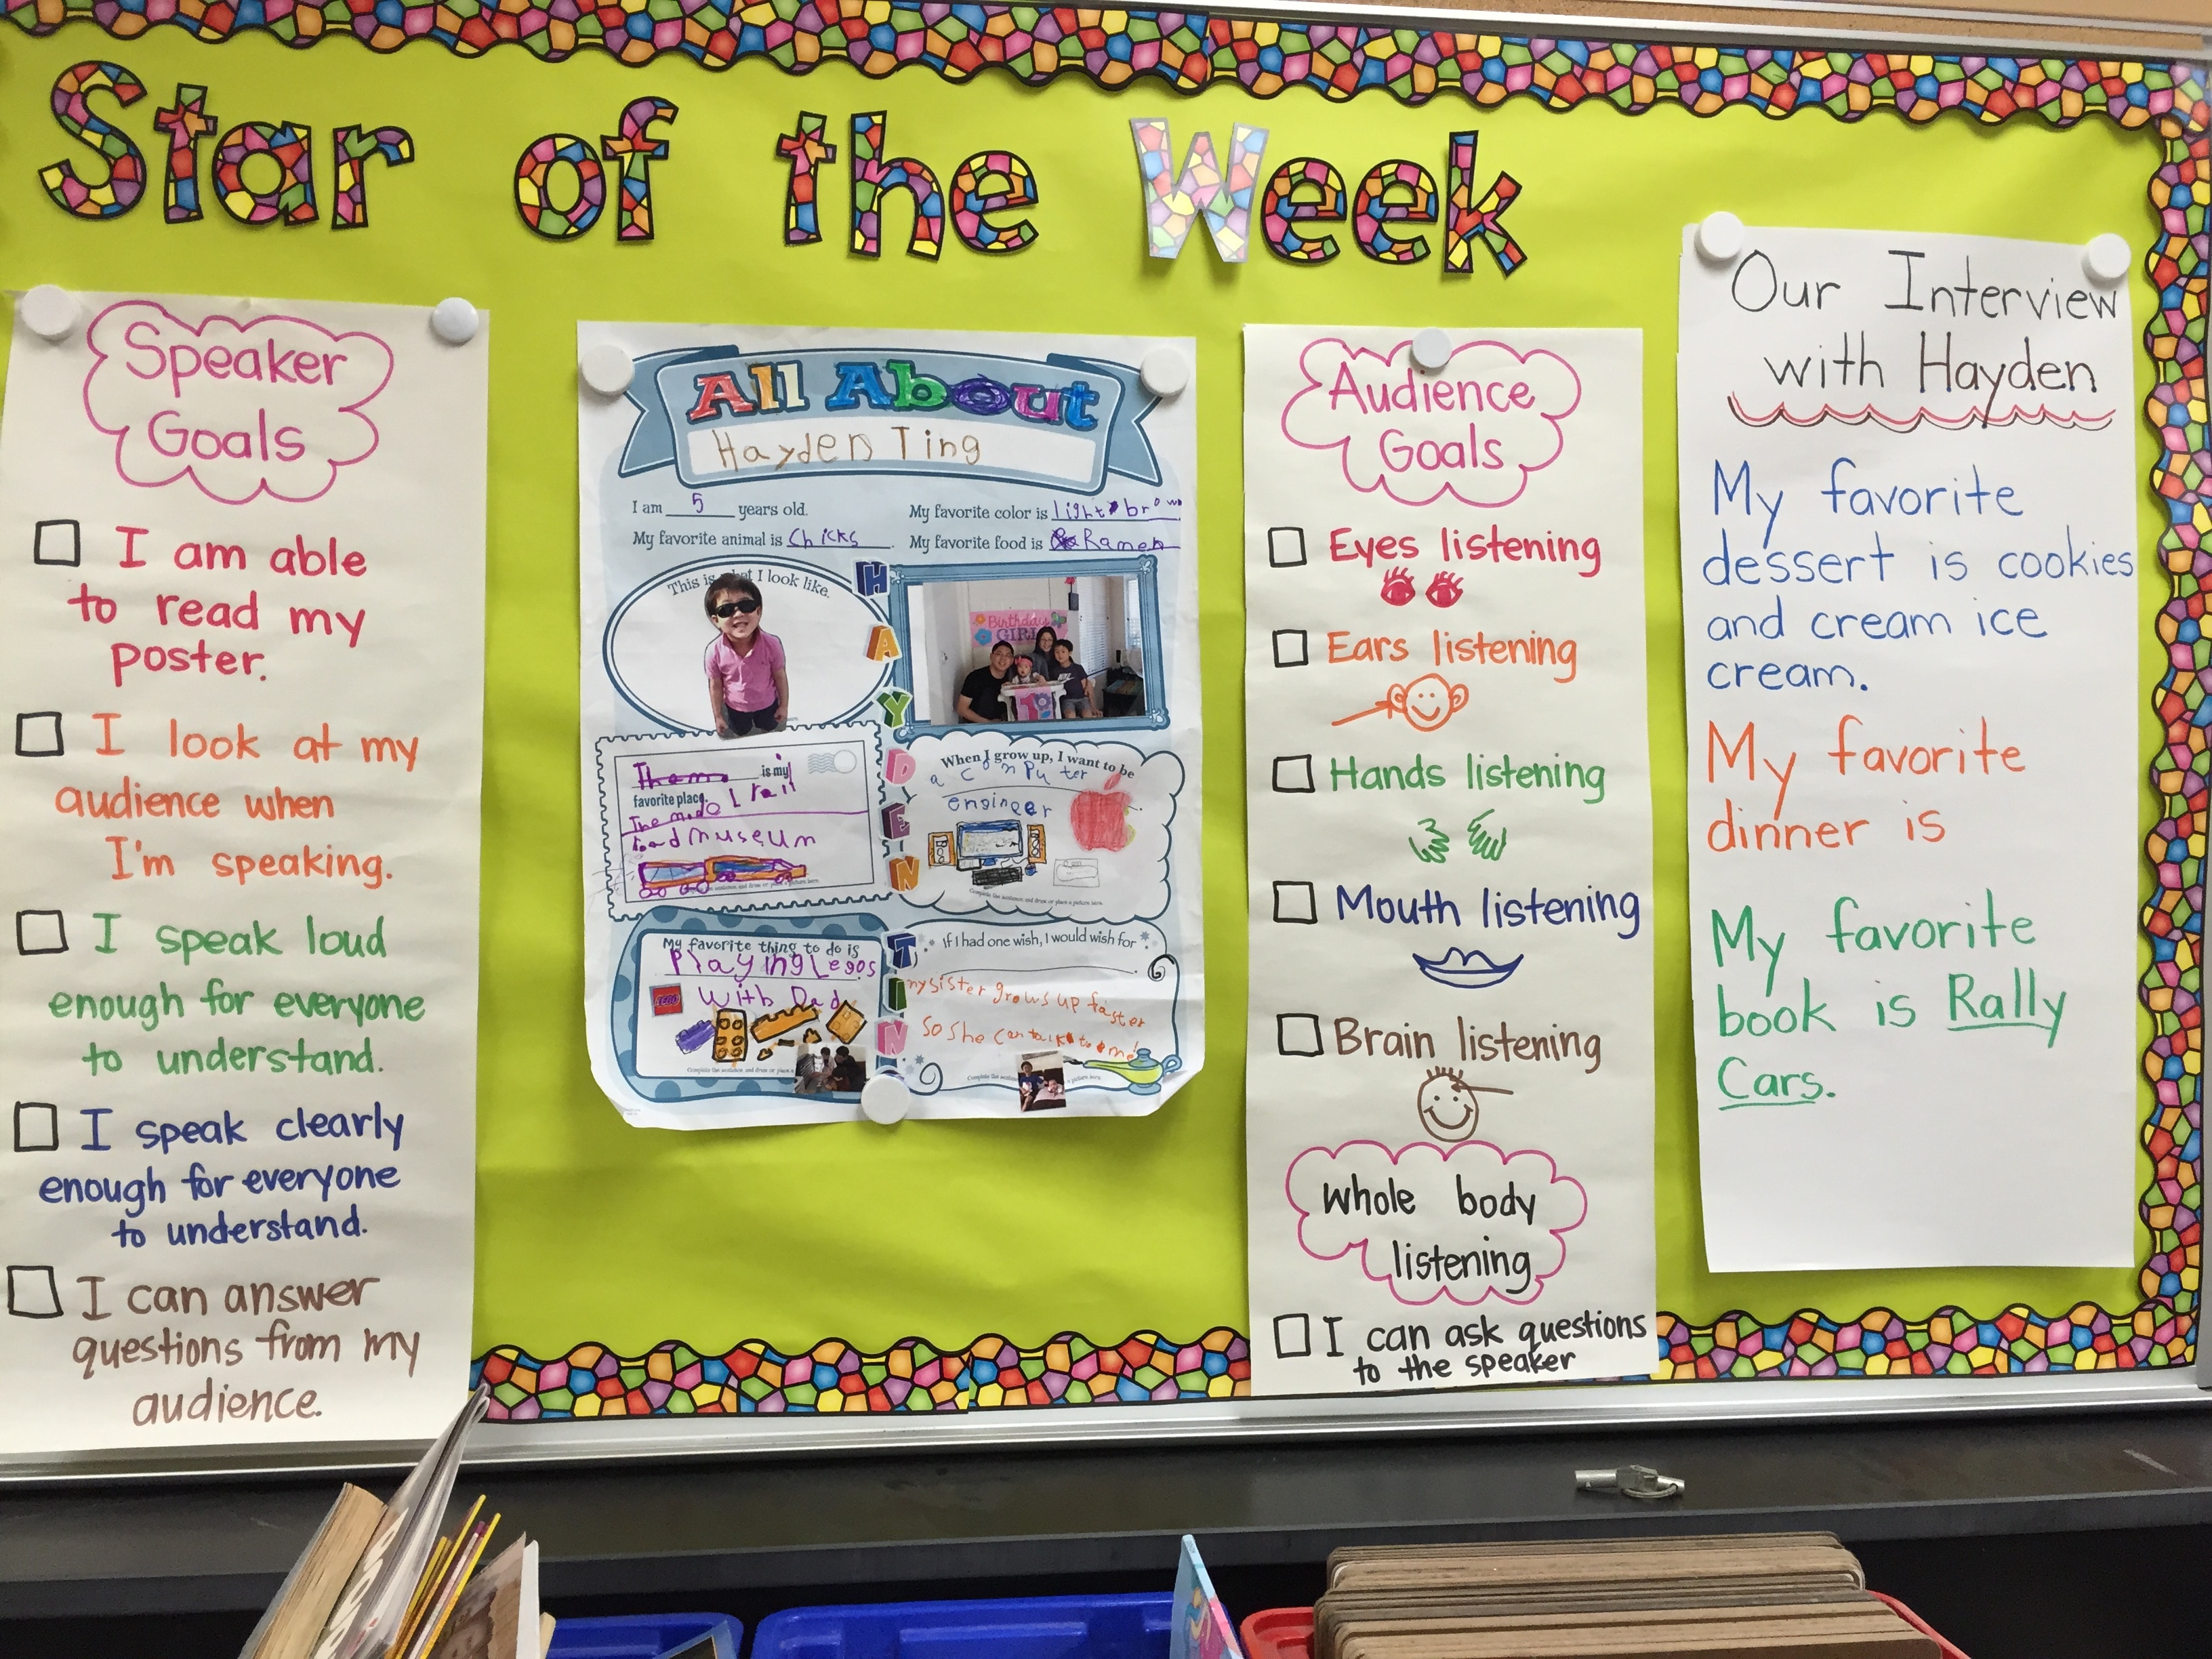 Star of the Week
Speaker
Goals
I am able
to read my
poster.
I look at my
audience when
I'm speaking.
I speak loud
enough for everyone
to understand.
I speak clearly
enough for everyone
to understand.
I can answer
questions from my
audience.
All About
Hayden Ting
I am 5 years old.
My favorite animal is Chicks.
My favorite color is light brown
My favorite food is Ramen
This is what I look like.
HAYDEN
TIN
Birthday
GIRL
is my
favorite place.
The model rail
road museum
When I grow up, I want to be
a computer
engineer
My favorite thing to do is
Playing Legos
With Dad
LEGO
If I had one wish, I would wish for
my sister grows up faster
So she can talk to me!
Audience
Goals
Eyes listening
Ears listening
Hands listening
Mouth listening
Brain listening
whole body
listening
I can ask questions
to the speaker
Our Interview
with Hayden
My favorite
dessert is cookies
and cream ice
cream.
My favorite
dinner is
My favorite
book is Rally
Cars.